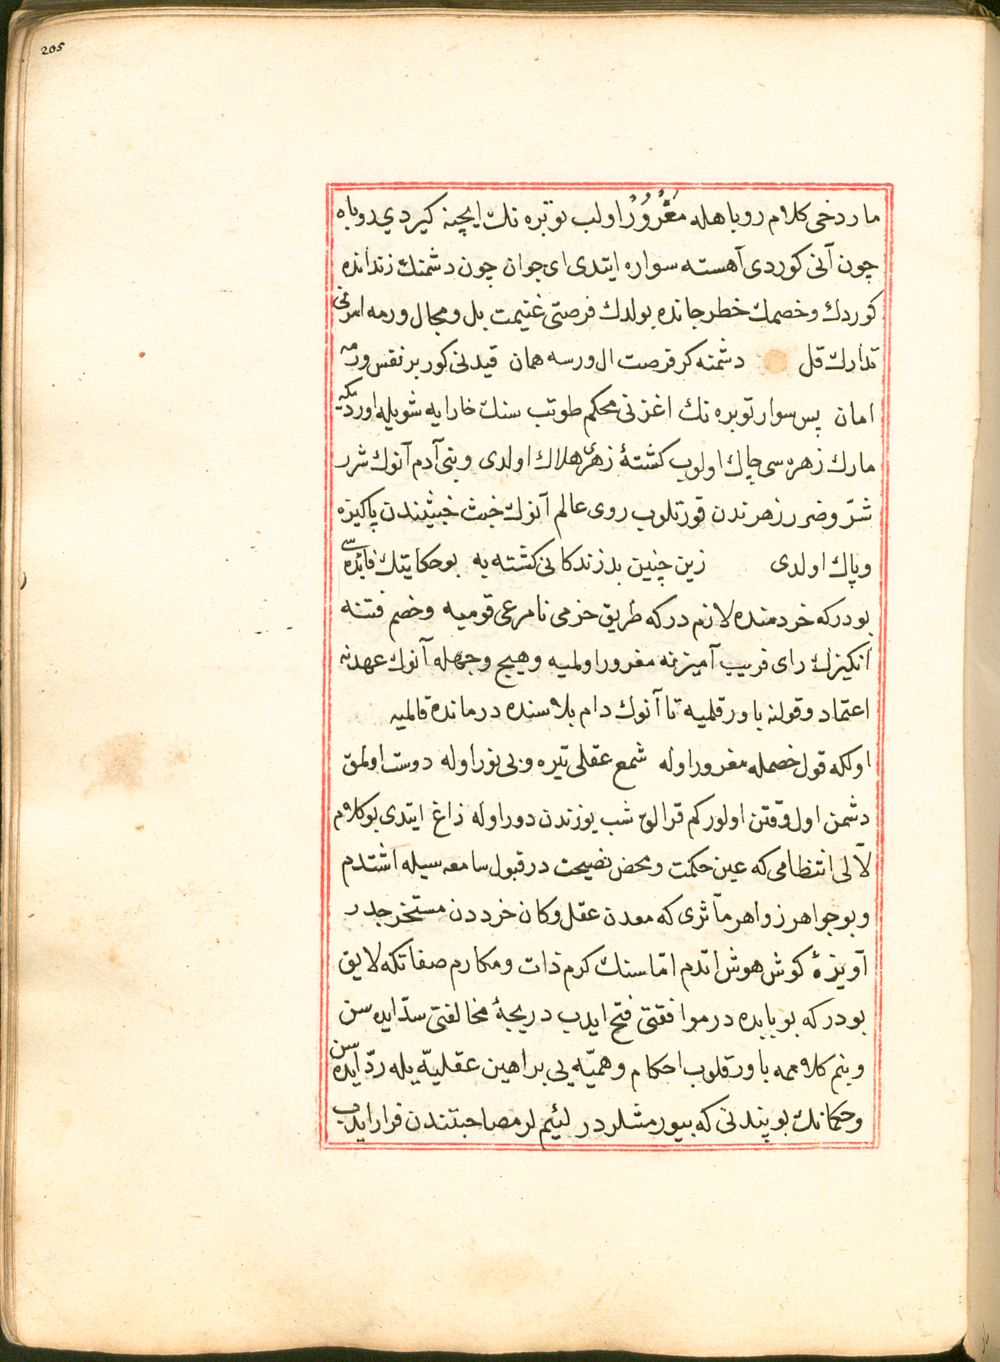 205
مار دخی کلام روباهله مغرور اولب توبره نك ایچنه کیردی روباه
چون آنی کوردی آهسته سواره ایتدی ای جوان چون دشمنك زندانده
کوردك و خصمك خطر جانده بولدك فرصتی غنیمت بل و مجال ورمه امرنی
تدارك قل دشمنه کر فرصت ال ورسه همان قیدنی کور بر نفس ورمه
امان پس سوار توبره نك اغزنی محکم طوتب سنك خارایه شویله اوردیکه
مارك زهره سی چاك اولوب کشتهٔ زهر هلاك اولدی و بنی آدم آنوك شرر
شرّ و ضرر زهرندن قورتلوب روی عالم آنوك خبث خبیثندن پاکیزه
و پاك اولدی زین چنین بد زندکانی کشته به بو حکایتك فایده سی
بودر که خردمنده لازم در که طریق حزمی نامرعی قومیه و خصم فتنه
انکیزك رای فریب آمیزنه مغرور اولمیه و هیچ وجهله آنوك عهدنه
اعتماد و قولنه باور قلمیه تا آنوك دام بلاسنده درمانده قالمیه
اولکه قول خصمله مغرور اوله شمع عقلی تیره و بی نور اوله دوست اولمق
دشمن اول وقتن اولور کم قرالوغ شب یوزندن دور اوله زاغ ایتدی بو کلام
لآلی انتظامی که عین حکمت و محض نصیحت در قبول سامعه سیله اشتدم
و بو جواهر زواهر مآثری که معدن عقل و کان خرددن مستخرجدر
آویزهٔ کوش هوش اتدم امّا سنك کرم ذات و مکارم صفاتکه لایق
بودر که بو بابده در موافقتی فتح ایدب دریچهٔ مخالفتی سدّ ایده سن
و بنم کلاممه باور قلوب احکام وهمیّه یی براهین عقلیّه یله ردّ ایده سن
و حکمانك بو پندنی که بیورمشلردر لئیملر مصاحبتندن فرار ایدب